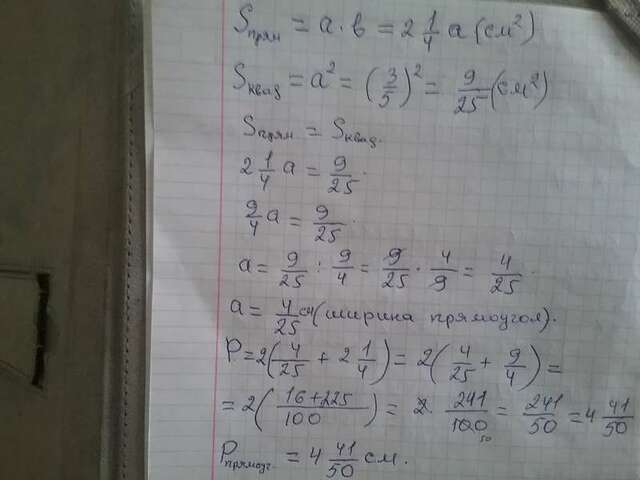 Sпрям = a · b = 2 1/4 a (см²)
Sквад = a² = (3/5)² = 9/25 (см²)
Sпрям = Sквад.
2 1/4 a = 9/25.
9/4 a = 9/25.
a = 9/25 : 9/4 = 9/25 · 4/9 = 4/25.
a = 4/25 см (ширина прямоугол).
P = 2(4/25 + 2 1/4) = 2(4/25 + 9/4) =
= 2((16+225)/100) = 2 · 241/100 50 = 241/50 = 4 41/50
Pпрямоуг. = 4 41/50 см.